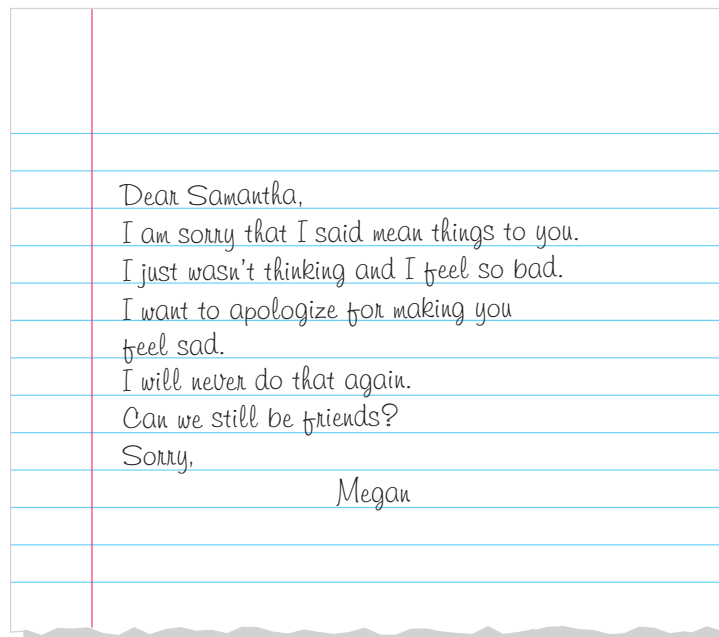 Dear Samantha,
I am sorry that I said mean things to you.
I just wasn't thinking and I feel so bad.
I want to apologize for making you
feel sad.
I will never do that again.
Can we still be friends?
Sorry,
Megan